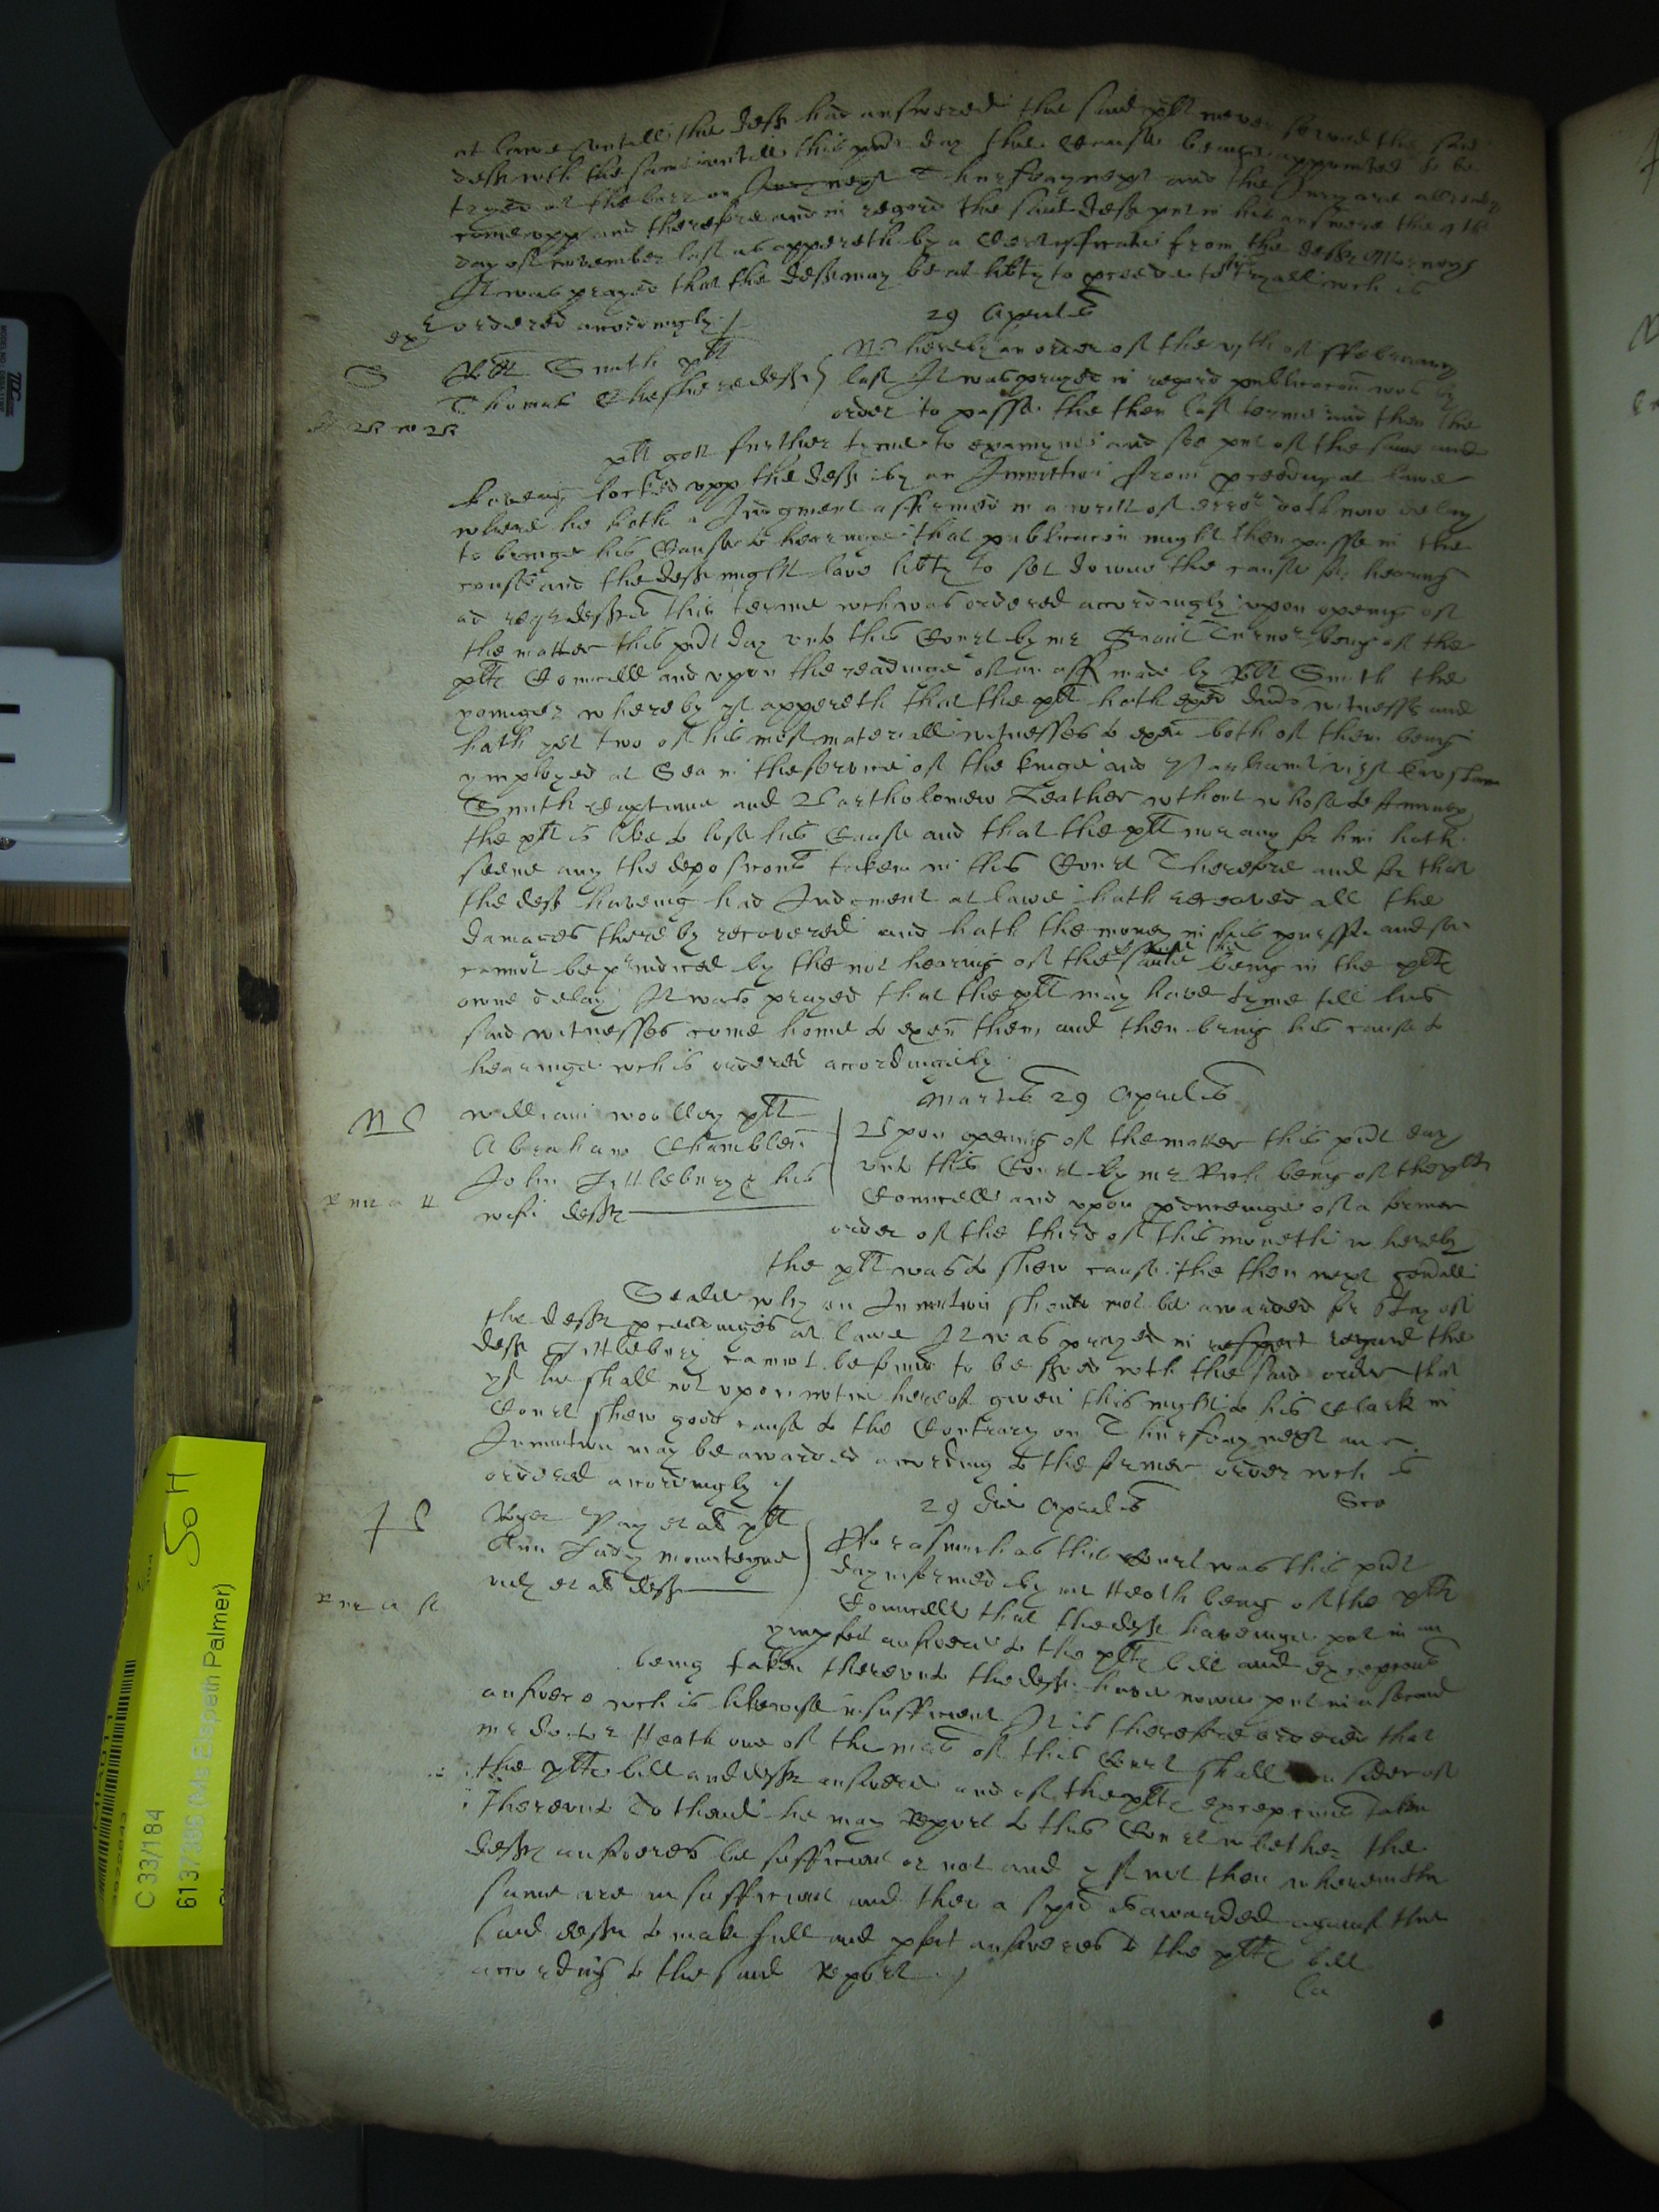 at lawe untill the deft had answered the said plt never served the said
deft wth the same untill this pnte day the cause being appointed to be
tryed at the barr on Thursday next and the Jury are allready
come upp and therefore and in regard the said deft put in his answere the 9th
day of november last as appereth by a Certifficate from the defts Attorney
It was prayed that the deft may be at libty to proceed to tryall wch is
ordered accordingly
29 Aprilis
Robt Smith plt
Thomas Cheshere deft
Whereby an order of the vth of ffebruary
last It was prayed in regard publicacon was by
order to passe the then last terme and then the
plt gott further tyme to examyne and soe put of the same and
haveing locked upp the deft by an Iniunction from proceding at lawe
where he hath a Judgment affirmed in a writt of error doth now delay
to bringe his Cause to hearinge that publicacon might then passe in the
cause and the deft might have libty to set downe the cause for hearing
ad reqr defts this terme wch was ordered accordingly upon opening of
the matter this pnte day unto this Court by mr Turnor being of the
plts Councell and upon the readinge of an aff made by Robt Smith the
younger whereby yt appereth that the plt hath exed witnesses and
hath yet two of his most materiall witnesses to exei both of them being
ymployed at Sea in the service of the kinge and Parliamt
Smith Captaine and Bartholomew Leather wthout whose testimony
the plt is like to lose his Cause and that the plt nor any for him hath
seene any the deposicons taken in this Court Therefore and for that
the deft haveing had Judgment at lawe hath receaved all the
damages thereby recovered and hath the money in his pursse and soe
cannot be preiudiced by the not hearing of the cause being in the plts
owne delay It was prayed that the plt may have tyme till his
said witnesses come home to exei them and then bring his cause to
hearinge wch is ordered accordingly
Martis 29 Aprilis
William Woolley plt
Abraham Chamblen
John Tittlebury & his
wife defts
Upon opening of the matter this pnte day
unto this Court by mr Rich being of the plts
Councell and upon pdruceinge of a former
order of the third of this moneth whereby
the plt was to shew cause the then next genall
Seale why an Iniunction should not be awarded for stay of
the defts procedinges at lawe It was prayed in respect regard the
deft Tittlebury cannot be found to be served wth the said order that
yf he shall not upon notice hereof given this night to his Clark in
Court shew good cause to the Contrary on Thursday next an
Iniunction may be awarded according to the former order wch is
ordered accordingly
29 die Aprilis
Roger Pay et al plt
Ann Lady Mountegue
vid et al defts
Fforasmuch as this Court was this pnte
day informed by mr Heath being of the plts
Councell that the defts haveinge put in an
ympfect answere to the plts bill and excepcons
being taken thereunto the defts have nowe put in a second
answere wch is likewise insufficient It is therefore ordered that
mr doctor Heath one of the mrs of this Court shall consider of
the plts bill and defts answere and of the plts excepcons taken
thereunto To thend he may report to this Court whether the
defts answeres be sufficient or not and yf not then wherein the
same are insufficient and then a spa is awarded against the
said defts to make full and pfect answeres to the plts bill
according to the said report
C 33/184
6137386 (Ms Elspeth Palmer)
SoH